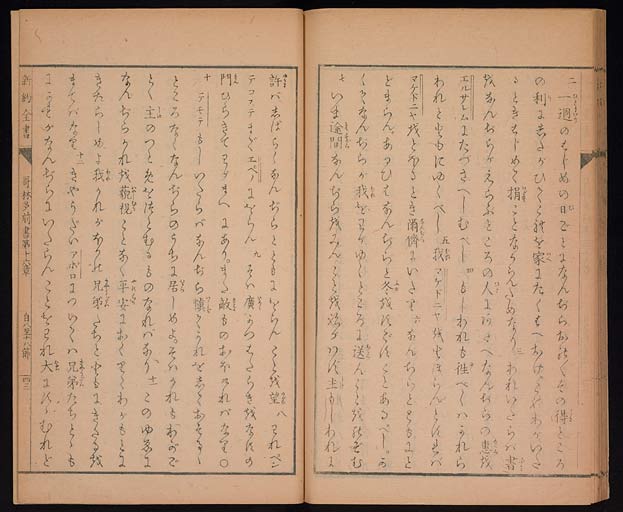 二 一週のはじめの日ごとになんぢらおのおのその得ところ
の利にしたがひてこれを家にたくはへおけよこれわがいた
るときはじめて捐ことなからんためなり 三 われいたらバ書
をなんぢらがえらぶところの人にあたへなんぢらの恵を
エルサレムにたづさへしむべし 四 もしわれも往べくハかれら
われとともにゆくべし 五 我マケドニヤをとほらんとすれバ
マケドニヤをとほるとき爾儕にいたりて 六 なんぢらとともにと
どまらん、あるひはなんぢらと冬をすごすことあるべし。か
くてなんぢらが我をわがゆくところに送んことをのぞむ
七 いま途間なんぢらをみんことを欲せず主もしわれに
許バしばらくなんぢらとともにをらんことを望 八 われペン
テコステまでエペソにをらん 九 そハ廣かつはたらきをなすの
門ひらきてわがまへにあり。また敵ものおほければなり○
十 テモテもしいたらバなんぢら慎てかれをしておそるゝ
ところなくなんぢらのうちに居しめよ。そハかれもわがご
とく主のつとめをつとむるものなればなり 十一 このゆゑに
なんぢらかれを藐視ことなく平安におくりてわがもとに
きたらしめよ我かれが兄弟たちとともにきたるを
まてバなり 十二 きやうだいアポロについてハ兄弟たちととも
にかれがなんぢらにいたらんことをわれ大にすゝむれど
新約全書 哥林多前書第十六章 自八至十八節 四三